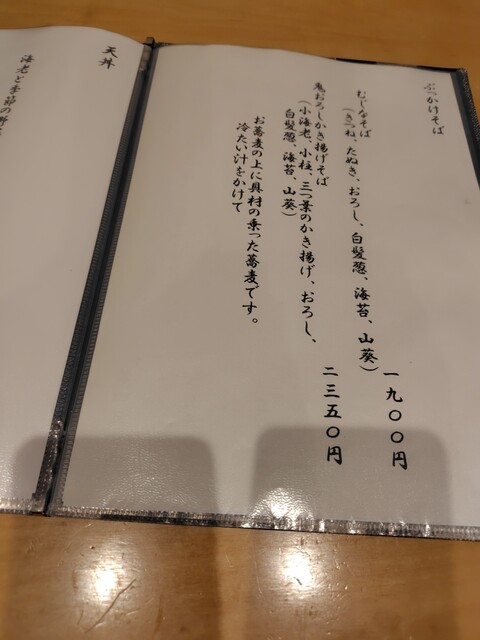 ぶっかけそば
むじなそば
(きつね、たぬき、おろし、白髪葱、海苔、山葵)
一九〇〇円
鬼おろしかき揚げそば
(小海老、小柱、三つ葉のかき揚げ、おろし、
白髪葱、海苔、山葵)
二三五〇円
お蕎麦の上に具材の乗った蕎麦です。
冷たい汁をかけて
天丼
海老と季節の野菜